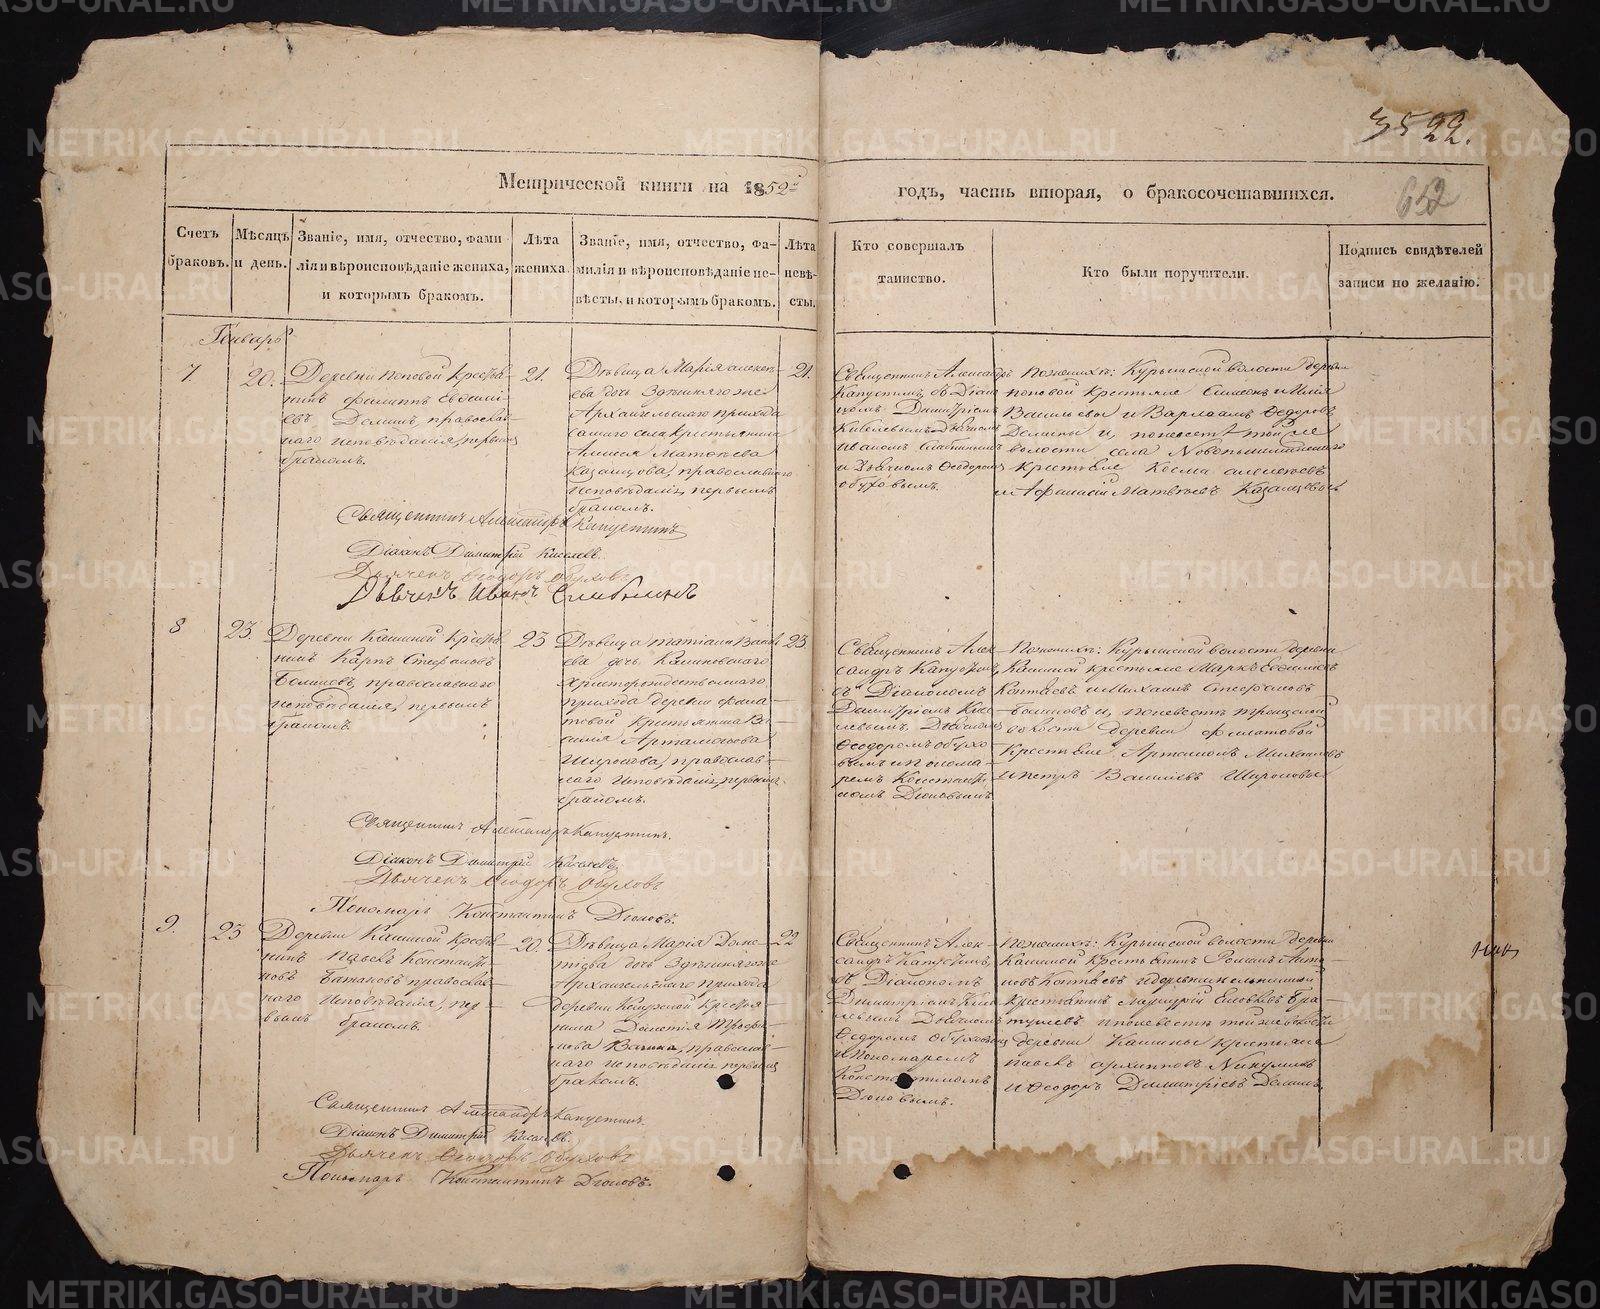 3522.
652
Метрической книги на 1852й
годъ, часть вторая, о бракосочетавшихся.
Счетъ браковъ.
Мѣсяцъ и день.
Званіе, имя, отчество, фами
лія и вѣроисповѣданіе жениха,
и которымъ бракомъ.
Лѣта жениха.
Званіе, имя, отчество, фа-
милія и вѣроисповѣданіе не-
вѣсты, и которымъ бракомъ.
Лѣта невѣ-
сты.
Кто совершалъ
таинство.
Кто были поручители.
Подпись свидѣтелей
записи по желанію.
Генварь
7
20.
Деревни Поповой Крестья
нинъ Филиппъ Евдоки
евъ Деминъ, православ
наго исповѣданія, первымъ
бракомъ.
21.
Дѣвица Марія Алексѣ-
ева дочь Здѣшняго же
Архангельскаго прихода
сего села крестьянина
Алексѣя Матвѣева
Казанцова, православнаго
исповѣданія, первымъ
бракомъ.
21.
Священникъ Александръ
Капустинъ съ Діако
номъ Димитріемъ
Киселевымъ Дьячкомъ
Иваномъ Слабнинымъ
и Дьячкомъ Феодоромъ
Обуховымъ.
По женихѣ: Курьинской волости деревни
Поповой крестьяне Симеонъ и Илія
Васильевы и Варлаамъ Федоровъ
Демины и, по невѣстѣ той же
волости села Новопышминскаго
Крестьяне Косма Алексѣевъ
и Афанасій Матвѣевъ Казанцовы
Священникъ Александръ Капустинъ
Діаконъ Димитрій Киселевъ.
Дьячекъ Феодоръ Обуховъ
Дьячекъ Иванъ Слабнинъ
8
23.
Деревни Кашиной Крестья
нинъ Карпъ Стефановъ
православнаго
исповѣданія, первымъ
бракомъ.
23
Дѣвица Татіана Василь
ева дочь Калиновскаго
Христорождественскаго
прихода деревни Фила
товой крестьянина Ва
силія Артамонова
Широкова, православ-
наго исповѣданія, первымъ
бракомъ.
23.
Священникъ Алек-
сандръ Капустинъ,
съ Діакономъ
Димитріемъ Кисе
левымъ Дьячкомъ
Феодоромъ Обухо
вымъ и Понома
ремъ Константи
номъ Дюковымъ
По женихѣ: Курьинской волости деревни
Кашиной крестьяне Маркъ
Коптяевъ и Михаилъ Стефановъ
и, по невѣстѣ
волости деревни Филатовой
Крестьяне Артамонъ Михайловъ
и Петръ Васильевъ Широковы
Священникъ Александръ Капустинъ.
Діаконъ Димитрій Киселевъ
Дьячекъ Феодоръ Обуховъ
Пономарь Константинъ Дюковъ.
9.
23
Деревни Кашиной Крестья
нинъ Павелъ Константи
новъ православ-
наго исповѣданія, пер-
вымъ бракомъ.
20.
Дѣвица Марія Доме-
тіева дочь Здѣшняго же
Архангельскаго прихода
деревни Кашиной Крестья
нина Дометія Трофи-
мова православ-
наго исповѣданія первымъ
бракомъ.
22
Священникъ Алек-
сандръ Капустинъ,
съ Діакономъ
Димитріемъ Кисе
левымъ Дьячкомъ
Феодоромъ Обуховымъ
и Пономаремъ
Константиномъ
Дюковымъ.
По женихѣ: Курьинской волости деревни
Кашиной Крестьянинъ Романъ
Коптяевъ и деревни
Крестьянинъ
и по невѣстѣ той же волости
деревни Кашины крестьяне
Павелъ Архиповъ Никулинъ
и Феодоръ Димитріевъ Деминъ.
Священникъ Александръ Капустинъ.
Діаконъ Димитрій Киселевъ.
Дьячекъ Феодоръ Обуховъ
Пономарь Константинъ Дюковъ.
METRIKI.GASO-URAL.RU